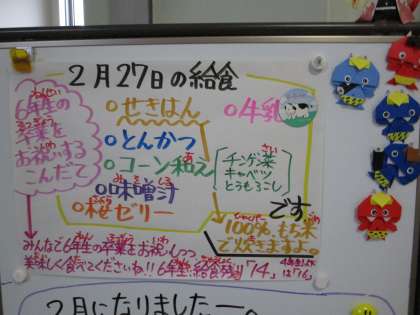 2月27日の給食
6年生の
卒業を
お祝いする
こんだて
○せきはん
○とんかつ
○コーン和え
○味噌汁
○桜ゼリー
○牛乳
チンゲン菜
キャベツ
とうもろこし
です
100%もち米
で炊きますよ。
みんなで6年生の卒業をお祝いしつつ
美味しく食べてくださいね!!6年生の給食
「74」
は「76」
2月になりました